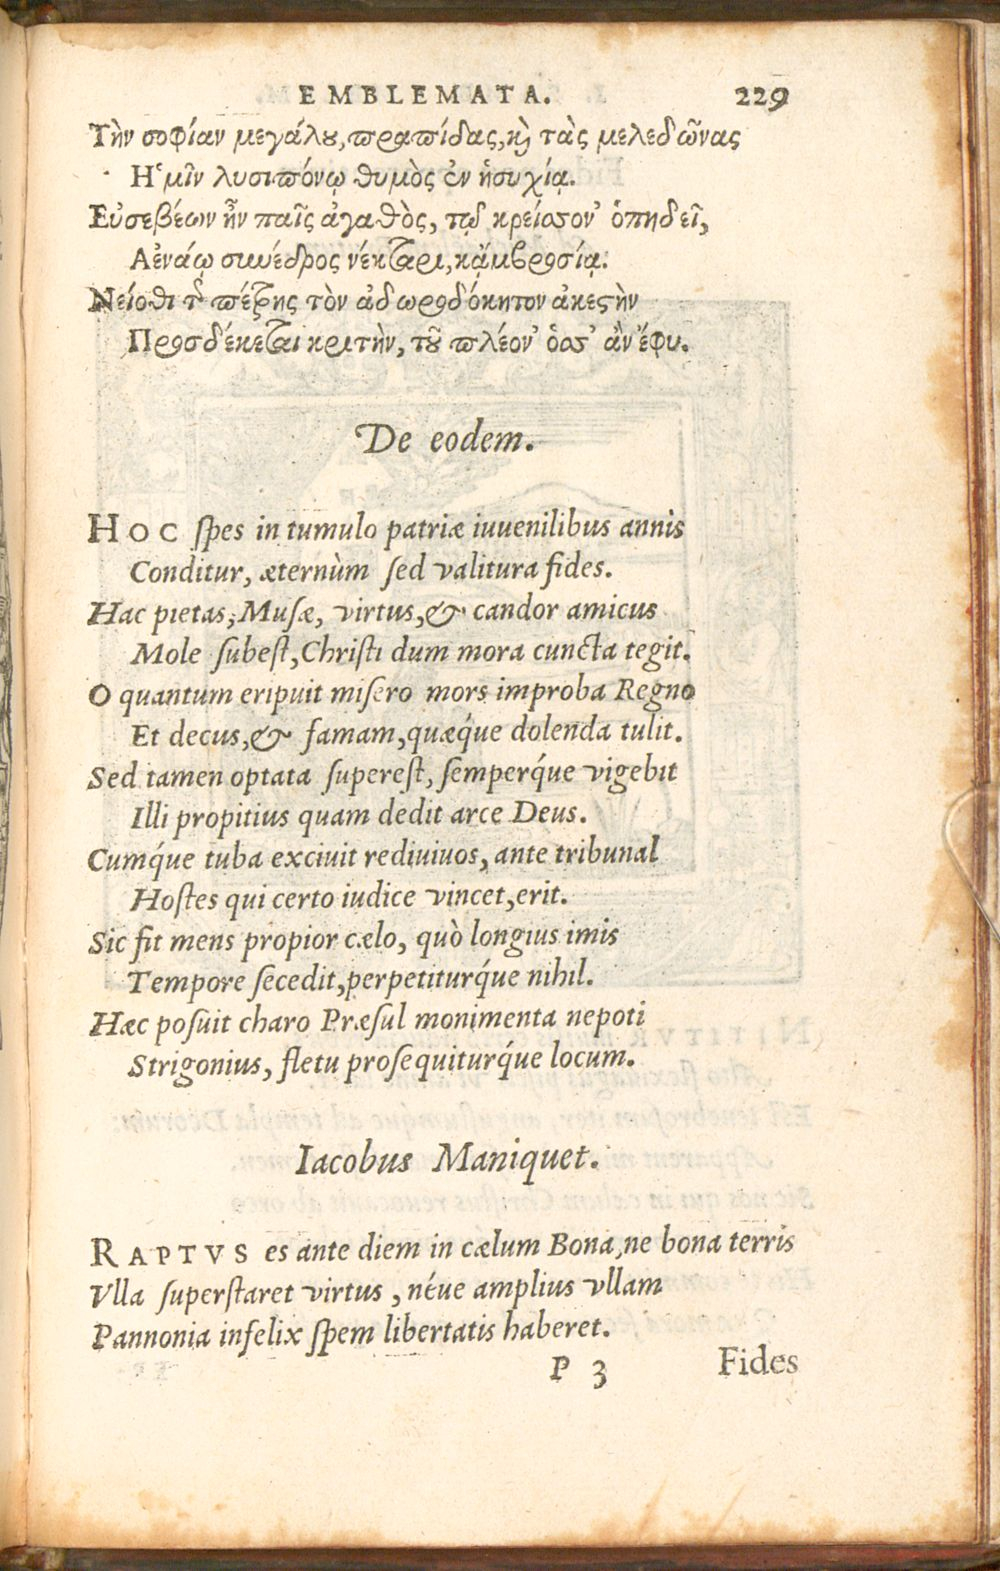 EMBLEMATA. 229
Τὴν σοφίαν μεγάλου, πραπίδας, καὶ τὰς μελεδῶνας
Ἥ μῖν λυσιπόνῳ θυμὸς ἐν ἡσυχίᾳ.
Εὐσεβέων ἦν παῖς ἀγαθὸς, τῷ κρείοσον' ὀπηδεῖ,
Αἐνάῳ συνέδρος νέκταρι, κᾀμβροσίᾳ.
Νείοθι τῆς πέτρης τὸν ἀδωροδόκητον ἀκεστὴν
Προσδέκεται κριτὴν, τοῦ πλέον' ὅσσ' ἂν ἔφυ.
De eodem.
HOC ſpes in tumulo patriæ iuuenilibus annis
Conditur, æternùm ſed valitura fides.
Hac pietas, Muſæ, virtus, & candor amicus
Mole ſubeſt, Chriſti dum mora cuncta tegit.
O quantum eripuit miſero mors improba Regno
Et decus, & famam, quæq́ue dolenda tulit.
Sed tamen optata ſupereſt, ſemperq́ue vigebit
Illi propitius quam dedit arce Deus.
Cumq́ue tuba exciuit rediuiuos, ante tribunal
Hoſtes qui certo iudice vincet, erit.
Sic fit mens propior cælo, quò longius imis
Tempore ſecedit, perpetiturq́ue nihil.
Hæc poſuit charo Præſul monimenta nepoti
Strigonius, fletu proſequiturq́ue locum.
Iacobus Maniquet.
RAPTVS es ante diem in cælum Bona, ne bona terris
Vlla ſuperſtaret virtus, néue amplius vllam
Pannonia infelix ſpem libertatis haberet.
P 3 Fides